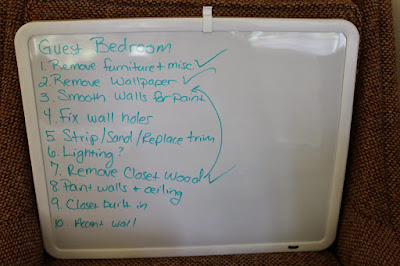 Guest Bedroom
1. Remove furniture + misc.
2. Remove Wallpaper
3. Smooth Walls for paint
4. Fix wall holes
5. Strip/Sand/Replace trim
6. Lighting?
7. Remove Closet Wood
8. Paint walls + ceiling
9. Closet built in
10. Accent Wall